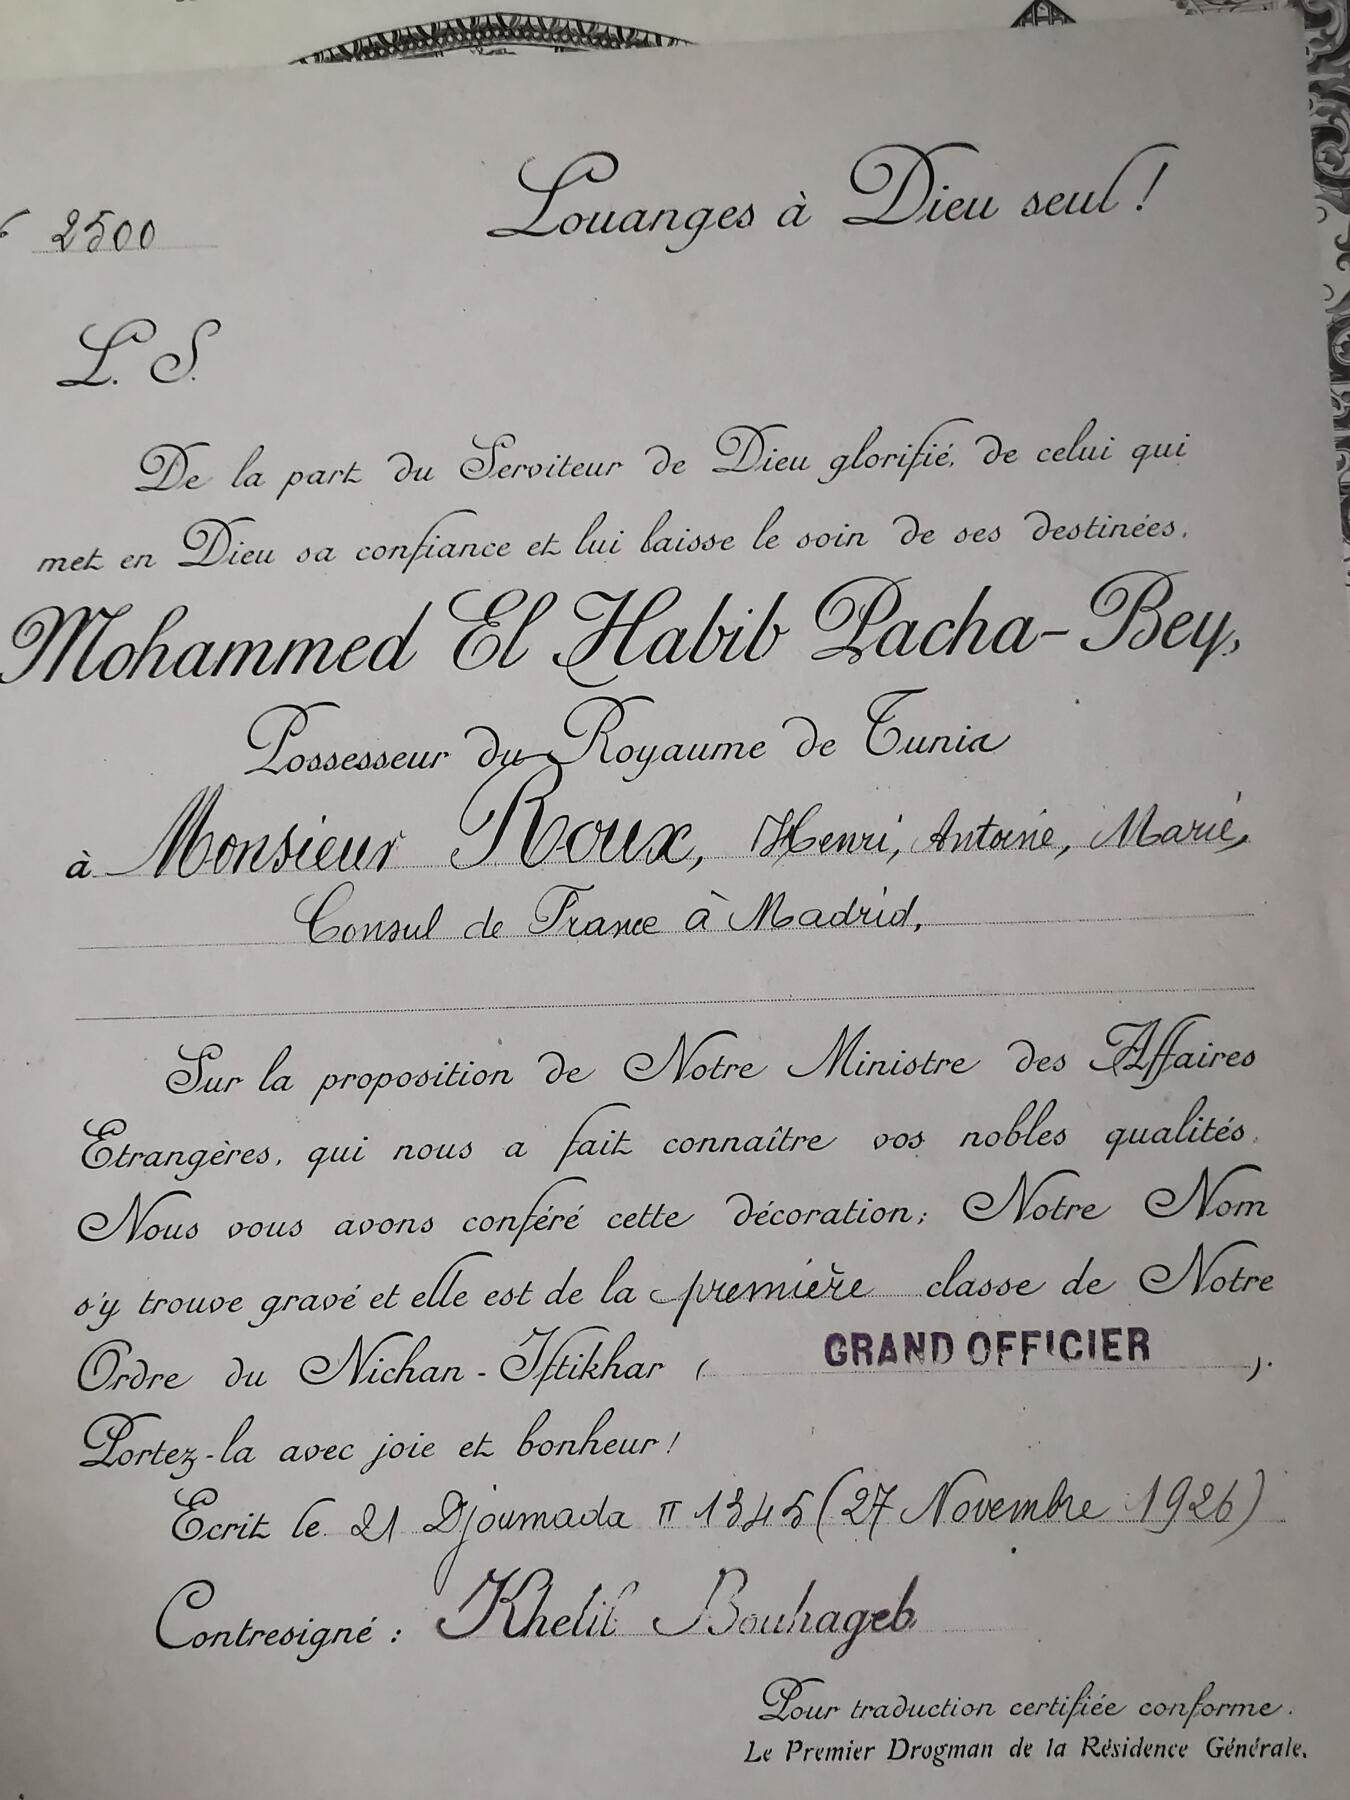 Louanges à Dieu seul !
2500
L. S.
De la part du Serviteur de Dieu glorifié, de celui qui
met en Dieu sa confiance et lui laisse le soin de ses destinées,
Mohammed El Habib Pacha-Bey,
Possesseur du Royaume de Tunis
à Monsieur Roux, Henri, Antoine, Marie,
Consul de France à Madrid,
Sur la proposition de Notre Ministre des Affaires
Etrangères, qui nous a fait connaître vos nobles qualités,
Nous vous avons conféré cette décoration; Notre Nom
s'y trouve gravé et elle est de la première classe de Notre
Ordre du Nichan-Iftikhar ( GRAND OFFICIER ).
Portez-la avec joie et bonheur !
Ecrit le 21 Djoumada II 1345 (27 Novembre 1926)
Contresigné : Khelil Bouhageb
Pour traduction certifiée conforme.
Le Premier Drogman de la Résidence Générale,